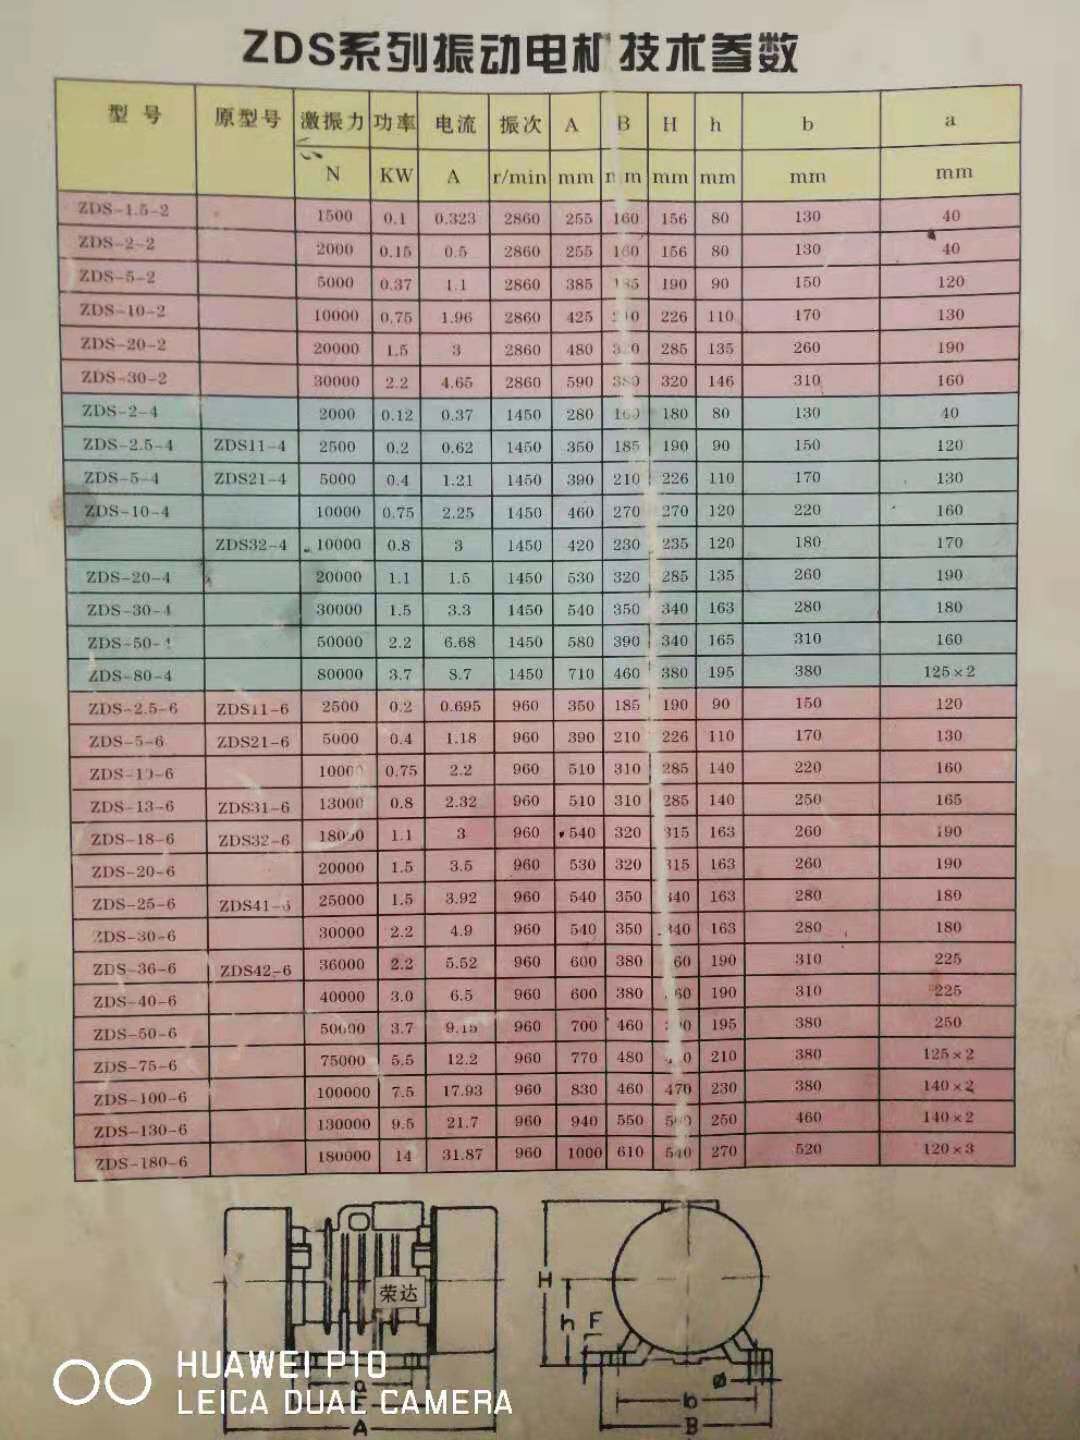 ZDS系列振动电机技术参数
型号 原型号 激振力 功率 电流 振次 A B H h b a
N KW A r/min mm mm mm mm mm mm
ZDS-1.5-2 1500 0.1 0.323 2860 255 160 156 80 130 40
ZDS-2-2 2000 0.15 0.5 2860 255 160 156 80 130 40
ZDS-5-2 5000 0.37 1.1 2860 385 190 90 150 120
ZDS-10-2 10000 0.75 1.96 2860 425 226 110 170 130
ZDS-20-2 20000 1.5 3 2860 480 285 135 260 190
ZDS-30-2 30000 2.2 4.65 2860 590 380 320 146 310 160
ZDS-2-4 2000 0.12 0.37 1450 280 160 180 80 130 40
ZDS-2.5-4 ZDS11-4 2500 0.2 0.62 1450 350 185 190 90 150 120
ZDS-5-4 ZDS21-4 5000 0.4 1.21 1450 390 210 226 110 170 130
ZDS-10-4 10000 0.75 2.25 1450 460 270 270 120 220 160
ZDS32-4 10000 0.8 3 1450 420 230 235 120 180 170
ZDS-20-4 20000 1.1 1.5 1450 530 320 285 135 260 190
ZDS-30-4 30000 1.5 3.3 1450 540 350 340 163 280 180
ZDS-50-4 50000 2.2 6.68 1450 580 390 340 165 310 160
ZDS-80-4 80000 3.7 8.7 1450 710 460 380 195 380 125×2
ZDS-2.5-6 ZDS11-6 2500 0.2 0.695 960 350 185 190 90 150 120
ZDS-5-6 ZDS21-6 5000 0.4 1.18 960 390 210 226 110 170 130
ZDS-10-6 10000 0.75 2.2 960 510 310 285 140 220 160
ZDS-13-6 ZDS31-6 13000 0.8 2.32 960 510 310 285 140 250 165
ZDS-18-6 ZDS32-6 18000 1.1 3 960 540 320 315 163 260 190
ZDS-20-6 20000 1.5 3.5 960 530 320 315 163 260 190
ZDS-25-6 ZDS41-6 25000 1.5 3.92 960 540 350 340 163 280 180
ZDS-30-6 30000 2.2 4.9 960 540 350 340 163 280 180
ZDS-36-6 ZDS42-6 36000 2.2 5.52 960 600 380 190 310 225
ZDS-40-6 40000 3.0 6.5 960 600 380 190 310 225
ZDS-50-6 50000 3.7 9.15 960 700 460 195 380 250
ZDS-75-6 75000 5.5 12.2 960 770 480 210 380 125×2
ZDS-100-6 100000 7.5 17.93 960 830 460 470 230 380 140×2
ZDS-130-6 130000 9.5 21.7 960 940 550 250 460 140×2
ZDS-180-6 180000 14 31.87 960 1000 610 540 270 520 120×3
H
荣达
h F
HUAWEI P10
LEICA DUAL CAMERA
a ø b
A B